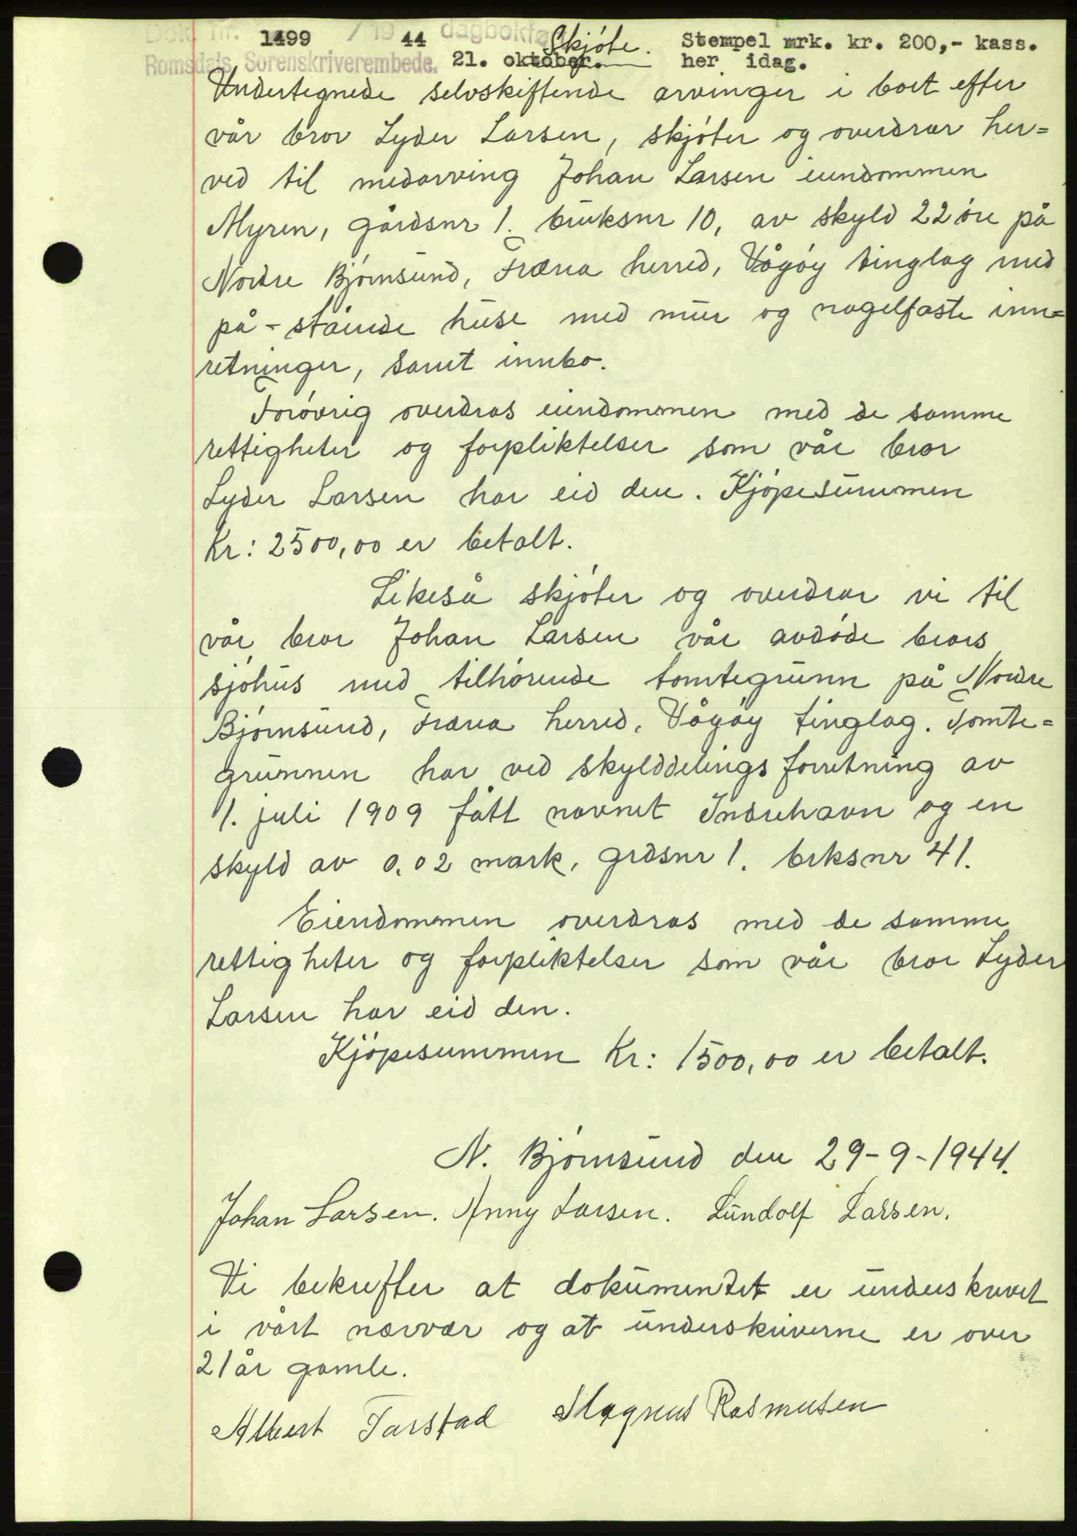 Dok. nr. 1499 / 19 44 dagbokført
Skjøte.
Stempel mrk. kr. 200,- kass.
Romsdals Sorenskriverembede. 21. oktober.
her idag.
Undertegnede selvskiftende arvinger i boet efter
vår bror Lyder Larsen, skjøter og overdrar her=
ved til medarving Johan Larsen eiendommen
Myren, gårdsnr 1. bruksnr 10, av skyld 22 øre på
Nordre Bjørnsund, Fræna herred, Vågøy tinglag med
på-stående huse med mur og nagelfaste inn=
retninger, samt innbo.
Forøvrig overdras eiendommen med de samme
rettigheter og forpliktelser som vår bror
Lyder Larsen har eid den. Kjøpesummen
Kr: 2500,00 er betalt.
Likeså skjøter og overdrar vi til
vår bror Johan Larsen vår avdøde brors
sjøhus med tilhørende tomtegrunn på Nordre
Bjørnsund, Fræna herred, Vågøy tinglag. Tomte=
grunnen har ved skylddelings forretning av
1. juli 1909 fått navnet Indrehavn og en
skyld av 0,02 mark, grdsnr 1. brksnr 41.
Eiendommen overdras med de samme
rettigheter og forpliktelser som vår bror Lyder
Larsen har eid den.
Kjøpesummen Kr: 1500,00 er betalt.
N. Bjørnsund den 29-9-1944.
Johan Larsen. Anny Larsen. Lundolf Larsen.
Vi bekrefter at dokumentet er underskrevet
i vårt nærvær og at underskriverne er over
21 år gamle.
Albert Tarstad Magnus Rasmusen